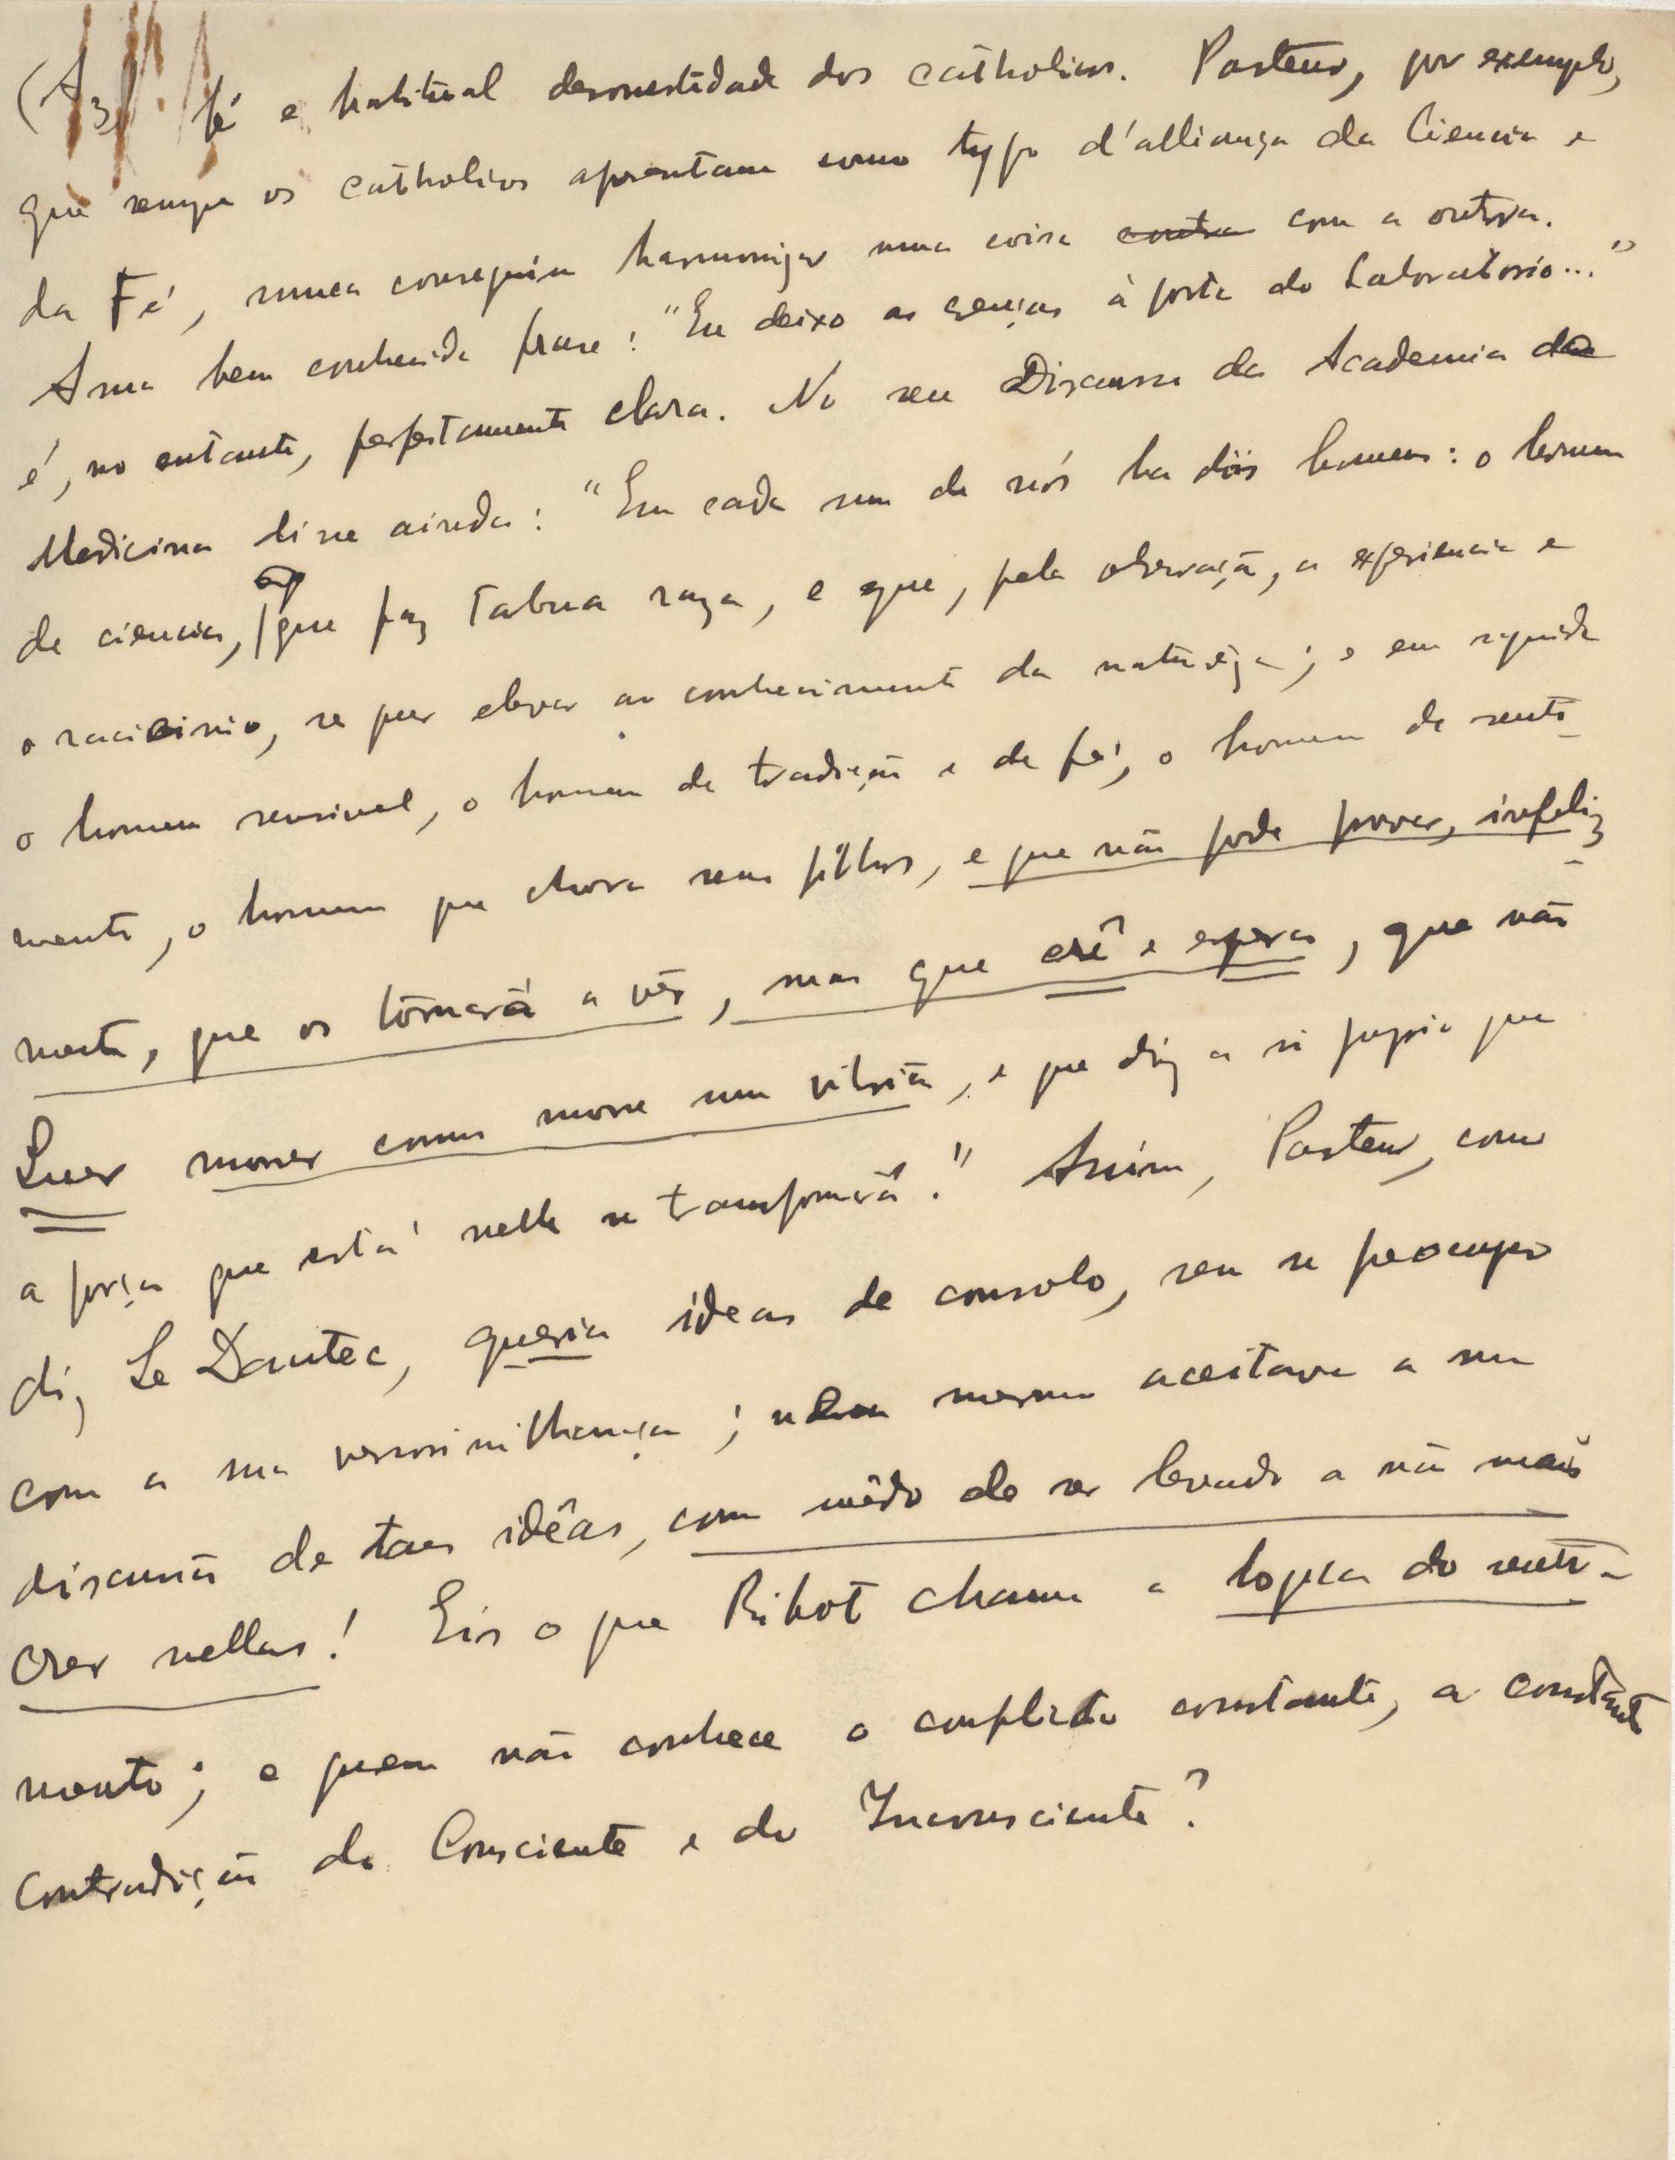 (A3) fé e habitual deshonestidade dos catholicos. Pasteur, por exemplo,
que sempre os catholicos apresentam como typo d'alliança da Ciencia e
da Fé, nunca conseguiu harmonizar uma coisa contra com a outra.
A sua bem conhecida frase: "Eu deixo as crenças à porta do Laboratorio..."
é, no entanto, perfeitamente clara. No seu Discurso da Academia de
Medicina disse ainda: "Em cada um de nós ha dois homens: o homem
de ciencia, que faz tabua raza, e que, pela observação, a experiencia e
o raciocinio, se quer elevar ao conhecimento da natureza; e em seguida
o homem sensivel, o homem de tradição e de fé, o homem de senti-
mento, o homem que chora seus filhos, e que não pode provar, infeliz-
mente, que os tornará a vêr, mas que crê e espera, que não
Quer morrer como morre um vibrião, e que diz a si proprio que
a força que está nelle se transformará." Assim, Pasteur, como
diz Le Dantec, queria ideas de consolo, sem se preocupar
com a sua verosimilhança; nem mesmo aceitava a sua
discussão de taes idêas, com mêdo de ser levado a não mais
crer nellas! Eis o que Ribot chama a logica do senti-
mento; e quem não conhece o conflicto constante, a constante
contradição do Consciente e do Inconsciente?